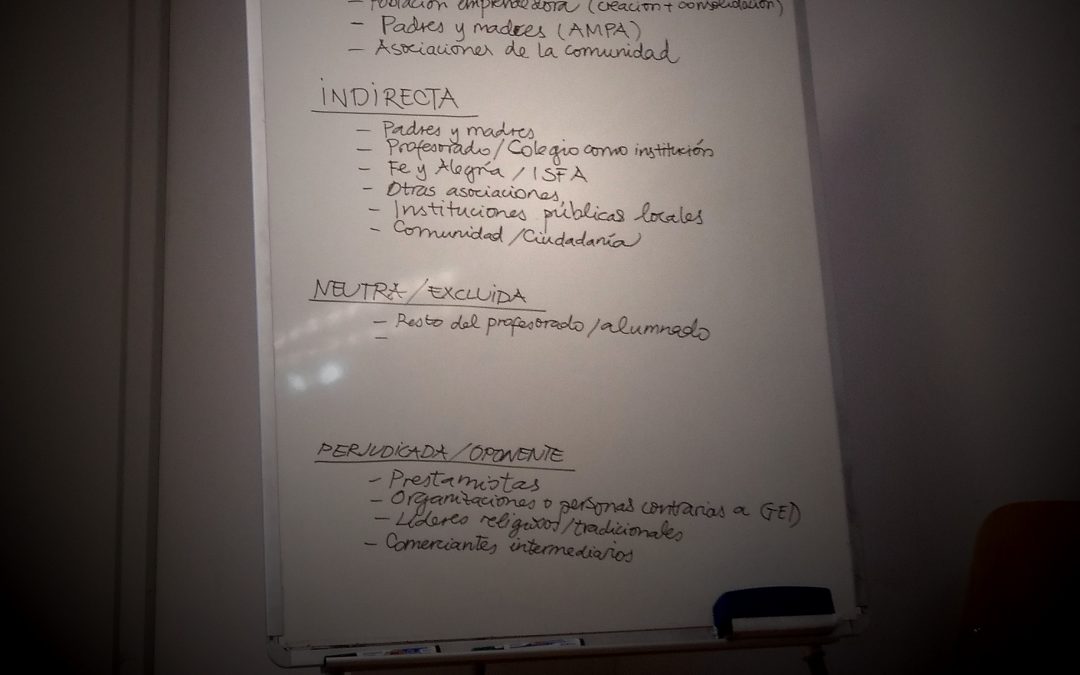 – Población emprendedora (creación + consolidación)
– Padres y madres (AMPA)
– Asociaciones de la comunidad
INDIRECTA
– Padres y madres
– Profesorado/Colegio como institución
– Fe y Alegría / ISFA
– Otras asociaciones,
– Instituciones públicas locales
– Comunidad /Ciudadanía
NEUTRA /EXCLUIDA
– Resto del profesorado /alumnado
–
PERJUDICADA/OPONENTE
– Prestamistas
– Organizaciones o personas contrarias a GED
– Líderes religiosos/tradicionales
– Comerciantes intermediarios